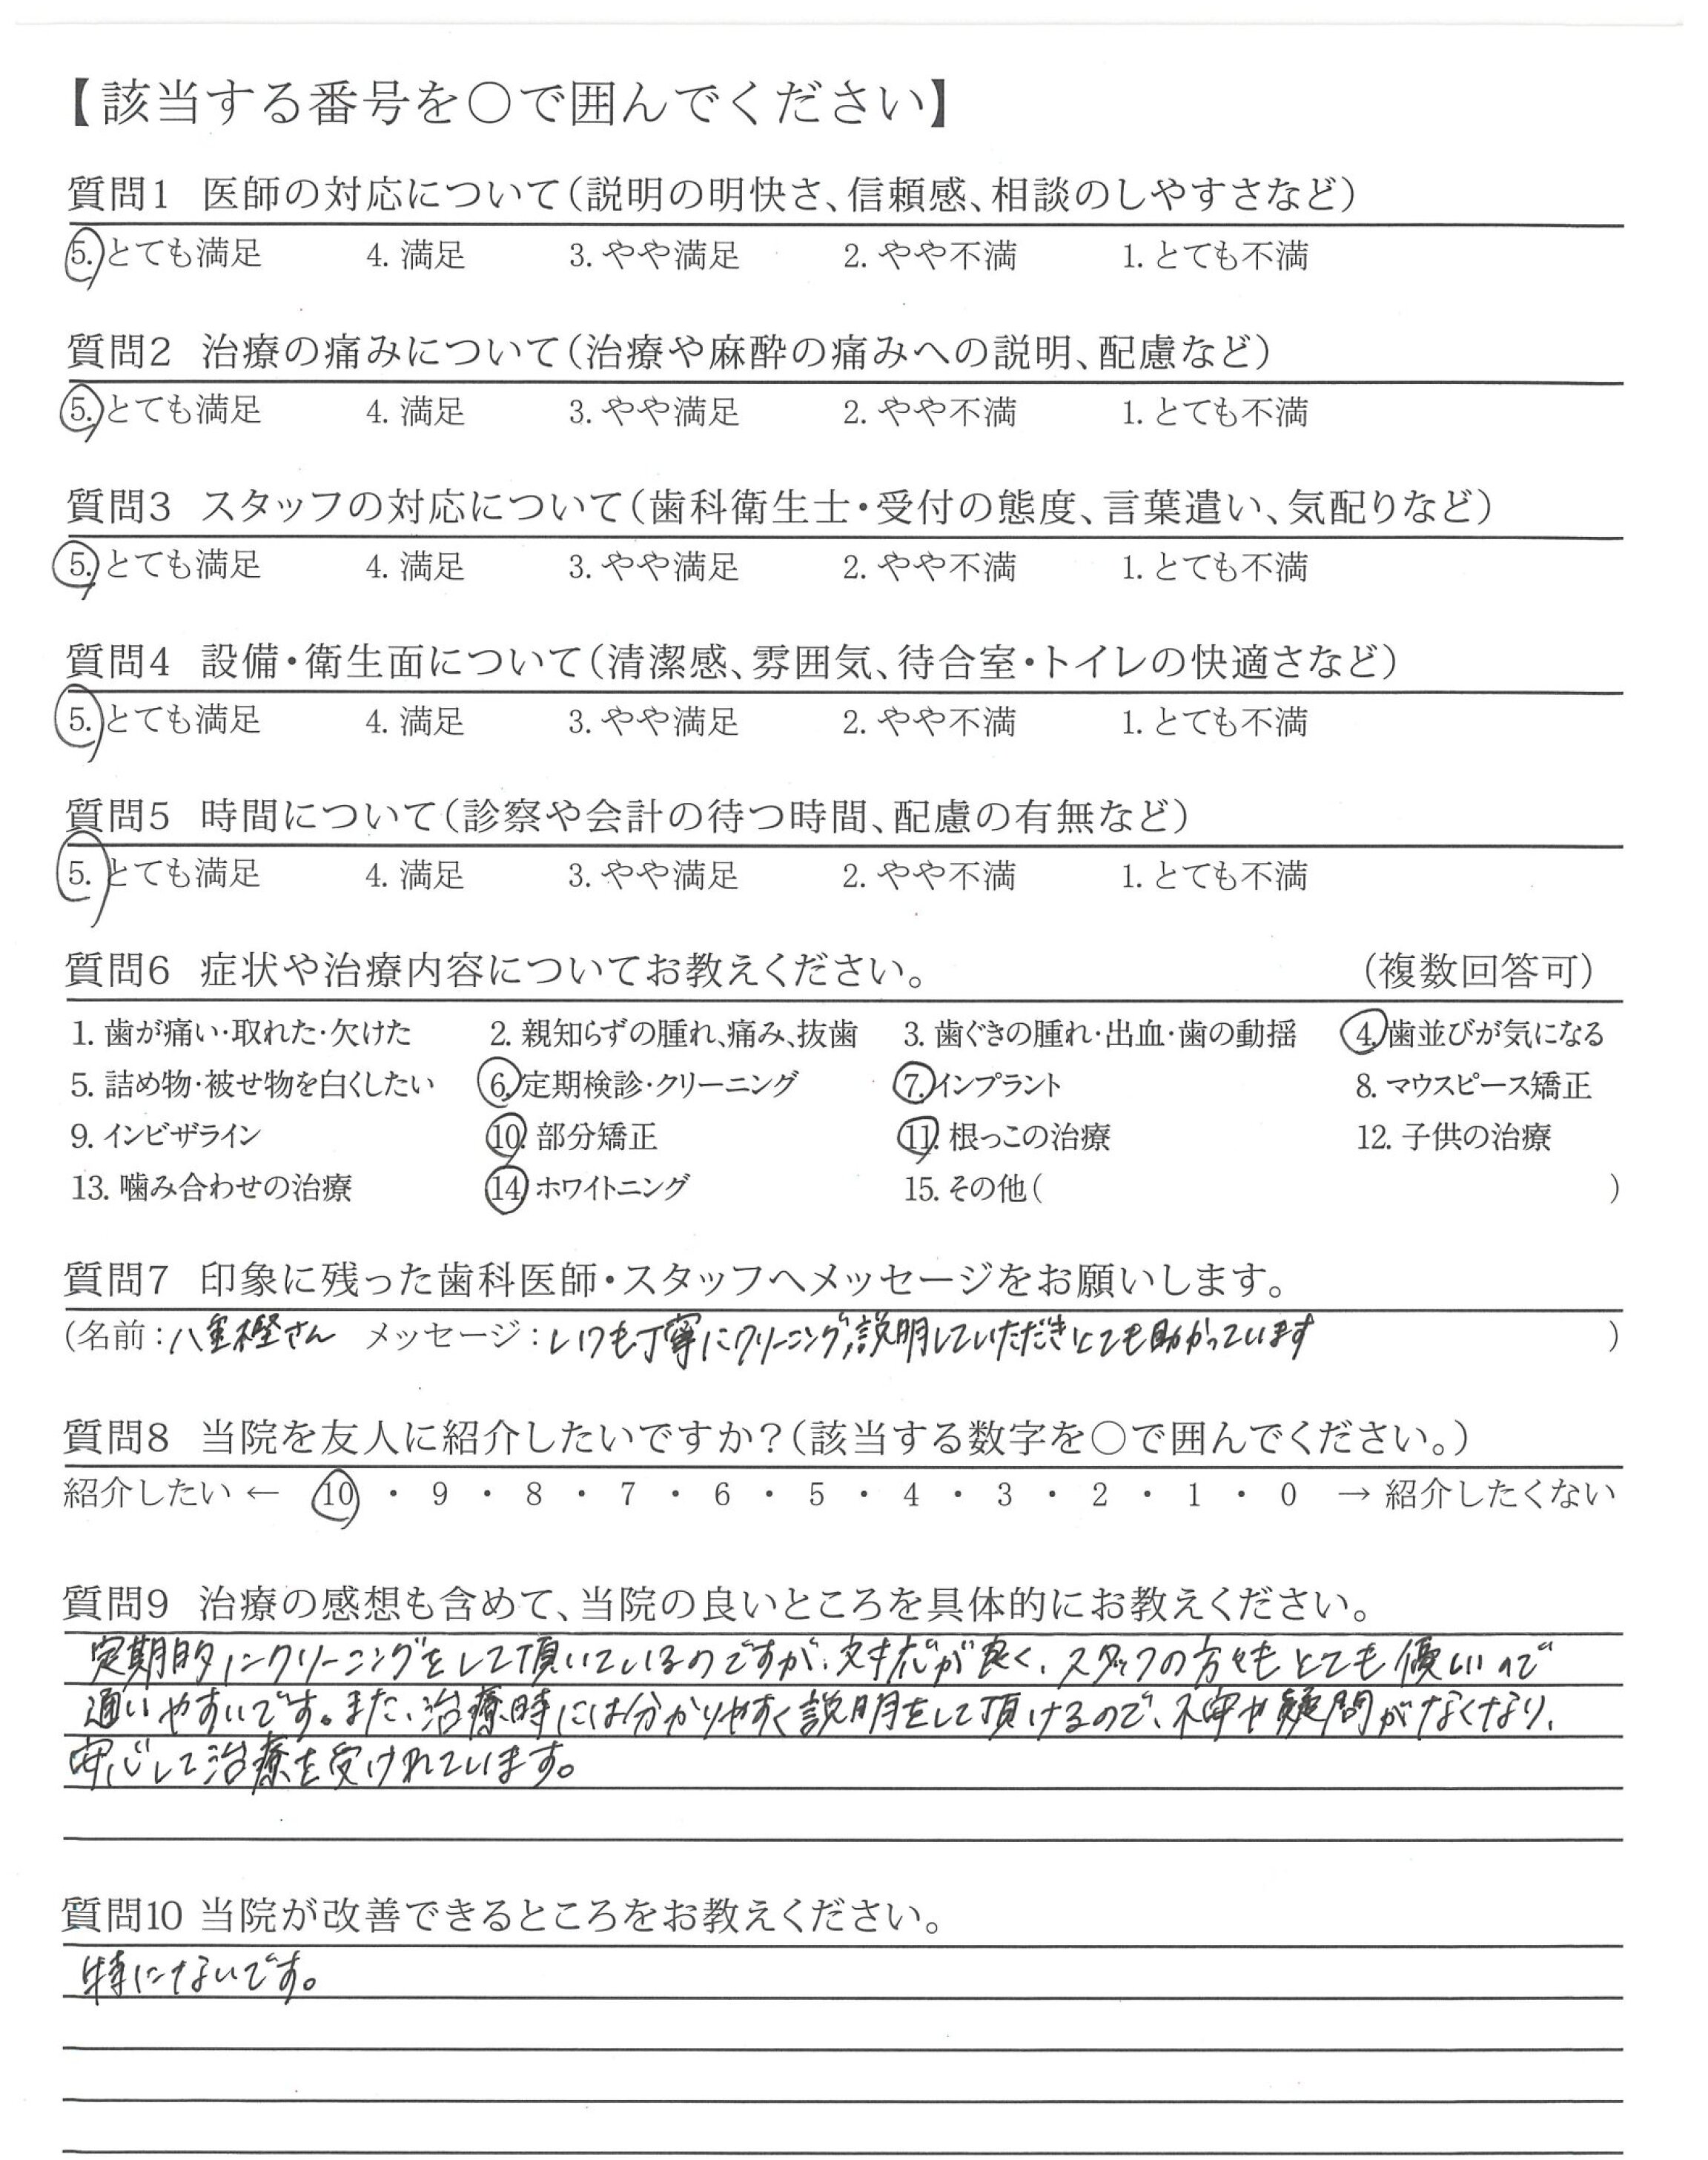 【該当する番号を〇で囲んでください】
質問1 医師の対応について（説明の明快さ、信頼感、相談のしやすさなど）
5. とても満足 4. 満足 3. やや満足 2. やや不満 1. とても不満
質問2 治療の痛みについて（治療や麻酔の痛みへの説明、配慮など）
5. とても満足 4. 満足 3. やや満足 2. やや不満 1. とても不満
質問3 スタッフの対応について（歯科衛生士・受付の態度、言葉遣い、気配りなど）
5. とても満足 4. 満足 3. やや満足 2. やや不満 1. とても不満
質問4 設備・衛生面について（清潔感、雰囲気、待合室・トイレの快適さなど）
5. とても満足 4. 満足 3. やや満足 2. やや不満 1. とても不満
質問5 時間について（診察や会計の待つ時間、配慮の有無など）
5. とても満足 4. 満足 3. やや満足 2. やや不満 1. とても不満
質問6 症状や治療内容についてお教えください。 （複数回答可）
1. 歯が痛い・取れた・欠けた 2. 親知らずの腫れ、痛み、抜歯 3. 歯ぐきの腫れ・出血・歯の動揺 4. 歯並びが気になる
5. 詰め物・被せ物を白くしたい 6. 定期検診・クリーニング 7. インプラント 8. マウスピース矯正
9. インビザライン 10. 部分矯正 11. 根っこの治療 12. 子供の治療
13. 噛み合わせの治療 14. ホワイトニング 15. その他（ ）
質問7 印象に残った歯科医師・スタッフへメッセージをお願いします。
（名前：八重樫さん メッセージ：いつも丁寧にクリーニング、説明していただきとても助かっています ）
質問8 当院を友人に紹介したいですか？（該当する数字を〇で囲んでください。）
紹介したい ← 10 ・ 9 ・ 8 ・ 7 ・ 6 ・ 5 ・ 4 ・ 3 ・ 2 ・ 1 ・ 0 → 紹介したくない
質問9 治療の感想も含めて、当院の良いところを具体的にお教えください。
定期的にクリーニングをして頂いているのですが、対応が良く、スタッフの方々もとても優しいので
通いやすいです。また、治療時には分かりやすく説明をして頂けるので、不安や疑問がなくなり、
安心して治療を受けれています。
質問10 当院が改善できるところをお教えください。
特にないです。